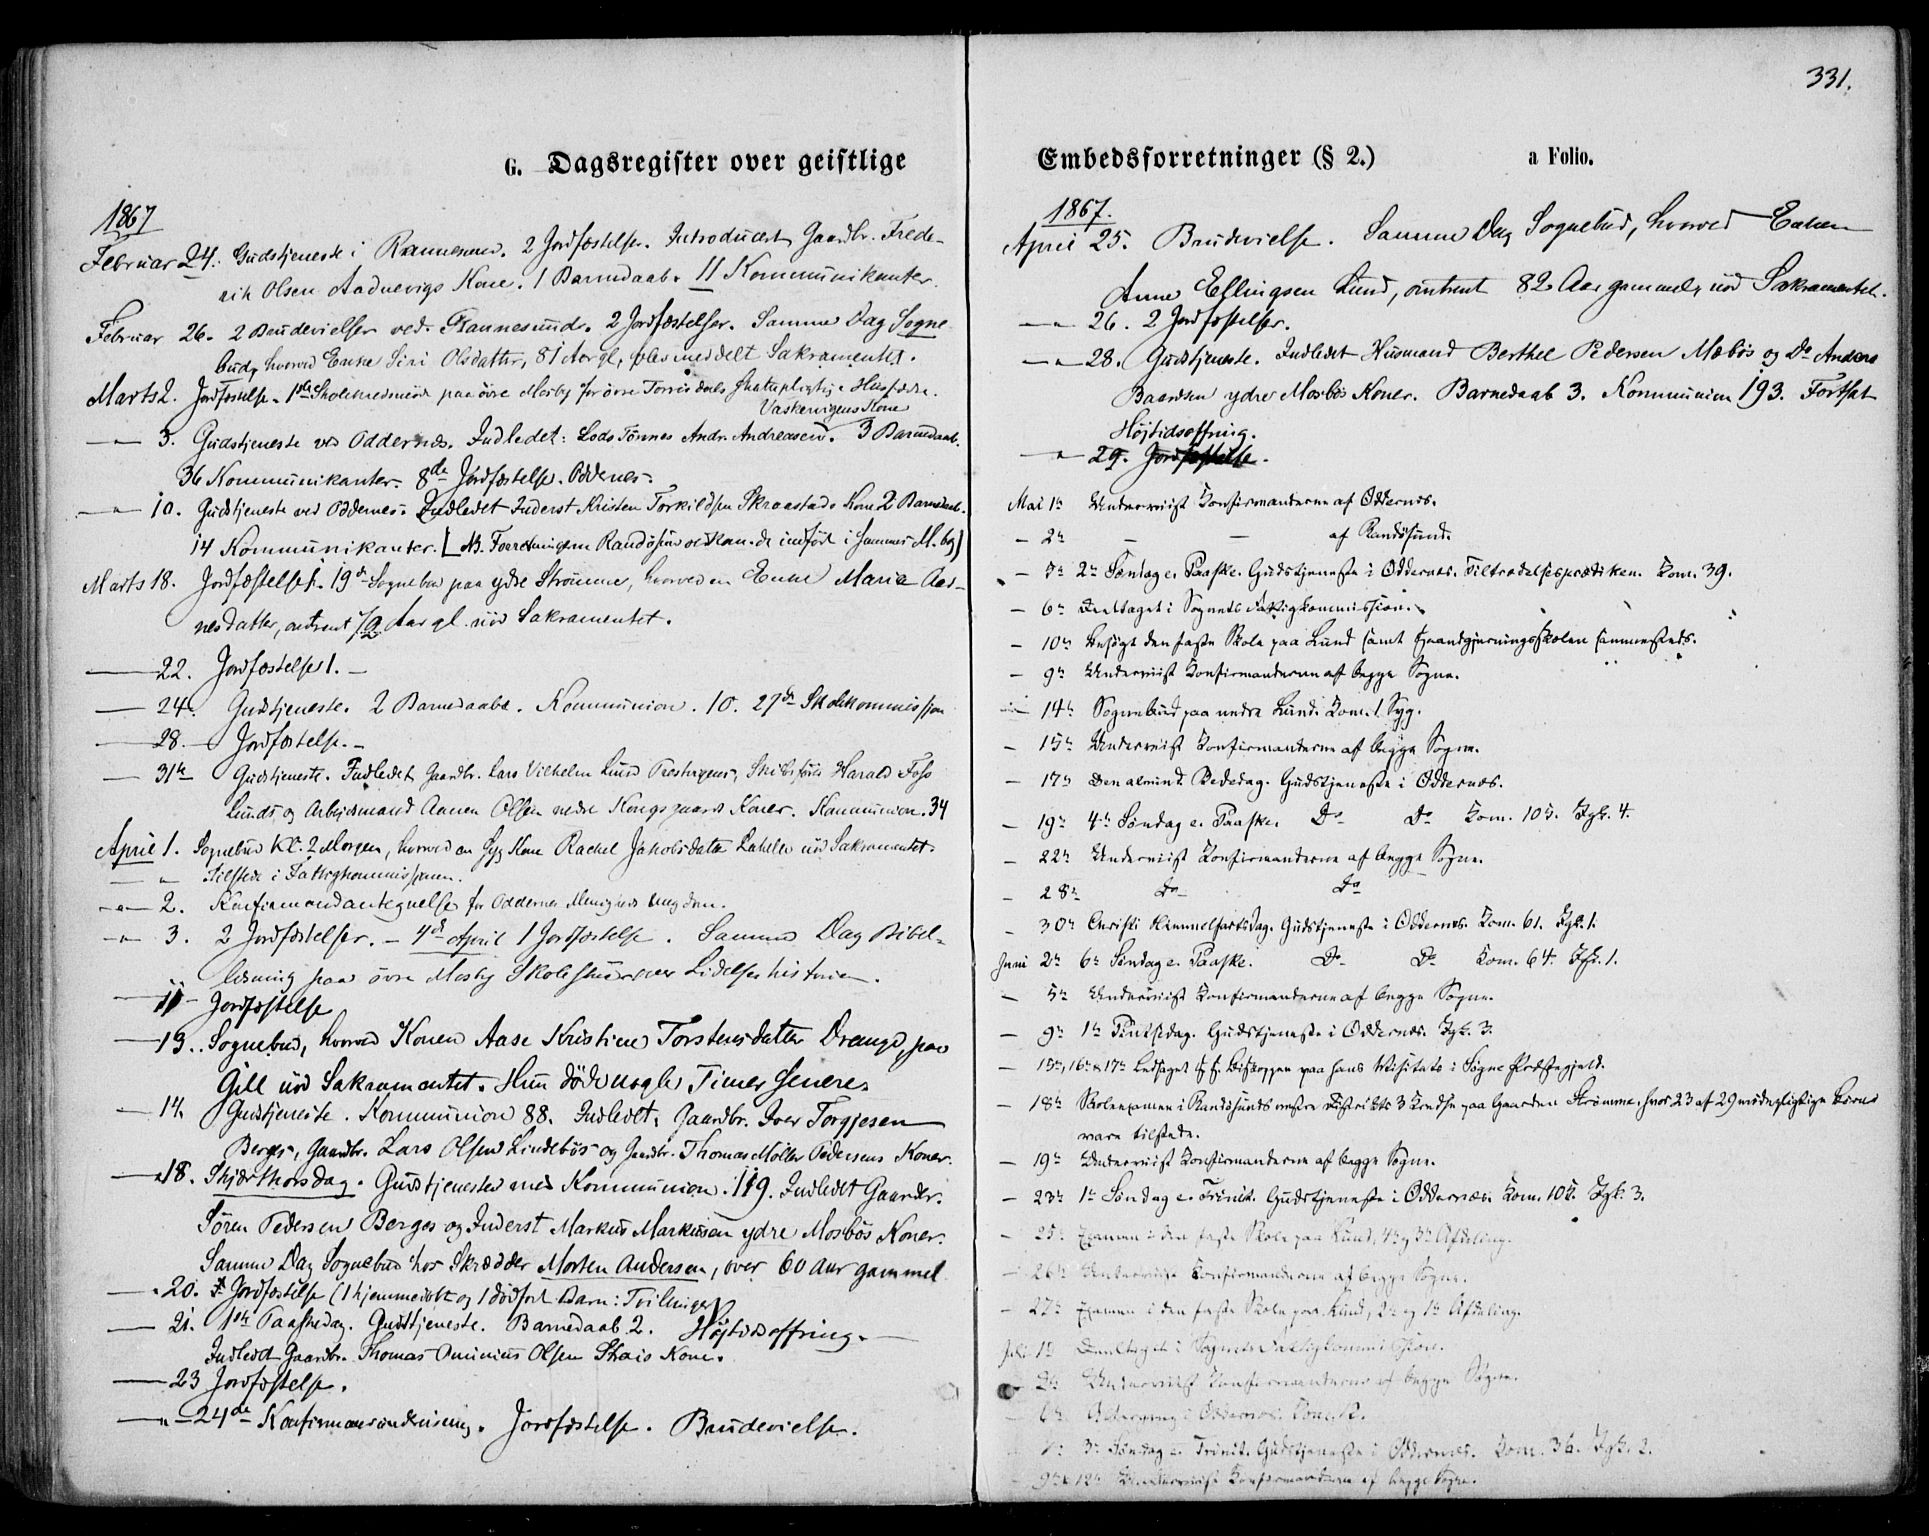 G. Dagsregister over geistlige
1867
Februar 24. Gudstjeneste i Rannesund. 2 Jordfæstelser. Introduceret Gaardbr. Frede-
rik Olsen Aadnevigs Kone. 1 Barnedaab. 11 Kommunikanter.
Februar 26. 2 Brudevielser ved Rannesund. 2 Jordfæstelser. Samme Dag Sogne-
bud, hvorved Enke Siri Olsdatter, 81 Aar gl., blev meddelt Sakramentet.
Marts 2. Jordfæstelse. paa övre Mosby for övre Torrisdals Skatepligtige Husfædre.
Vaskevigens Kone
— " — 3. Gudstjeneste ved Oddernæs. Indledet: Lods Tönnes Andr. Andreasen. 3 Barnedaab.
36 Kommunikanter. 8de Jordfæstelse. Oddernes.
— " — 10. Gudstjeneste ved Oddernes. Indledet Inderst Kristen Torkildsen Skraastads Kone 2 Barnedaab.
14 Kommunikanter. [NB. Forretningerne Randösund indfört i sammes M.bog]
Marts 18. Jordfæstelse 1. 19de Sognebud paa ydre Strömme, hvorved en Enke Maria Aa-
nesdatter, omtrent 79 Aar gl. nöd Sakramentet.
— 22. Jordfæstelse 1. —
— 24. Gudstjeneste. 2 Barnedaabe. Kommunion. 10. 27de Skolekommission
— 28. — Jordfæstelse. —
— 31te Gudstjeneste. Indledet Gaardbr. Lars Vilhelm Lund Prestvigens, Skibsförer Harald Foss
Lunds og Arbejdsmand Aanen Olsen nedre Kongsgaards Koner. Kommunion. 34
April 1. Sognebud Kl. 2 Morgen, hvorved en syg Kone Rachel Jakobsdatter nöd Sakramentet
— " Tilstede i Fattigkommissionen.
— " — 2. Konfirmandantegnelse for Oddernes Menigheds Ungdom.
— " — 3. 2 Jordfæstelser. — 4de April 1 Jordfæstelse. Samme Dag Bibel-
læsning paa övre Mosby Skolestue over Lidelseshistorien.
— 11 — Jordfæstelse
— 13. Sognebud, hvorved Konen Aase Kristine Torstensdatter Drange, paa
Gill nöd Sakramentet. Hun döde nogle Timer senere.
— 14. Gudstjeneste. Kommunion 88. Indledet: Gaardbr. Iver Torgjesen
Berges, Gaardbr. Lars Olsen Lindebös og Gaardbr. Thomas Möller Pedersens Koner.
— " 18. Skjærthorsdag. Gudstjeneste med Kommunion. 119. Indledet Gaardbr.
Sören Pedersen Berges og Inderst Markus Markussen ydre Mosbös Koner.
Samme Dag Sognebud hos Skrædder Morten Andersen, over 60 Aar gammel
— " 20. Jordfæstelse (1 hjemmedöbt og 1 dödfödt Barn: Tvillinger)
— 21. 1ste Paaskedag. Gudstjeneste. Barnedaab 2. Höjtidsoffring. —
Indledet Gaardbr. Thomas Ominius Olsen Kone.
— 23 Jordfæstelse.
— " — 24de Konfirmandundervisning. Jordfæstelse. Brudevielse.
331.
Embedsforretninger (§ 2.) a Folio.
1867.
April 25. Brudevielse. Samme Dag Sognebud, hvorved Enken
Anne Ellingsen Lund, omtrent 82 Aar gammel, nöd Sakramentet.
— " — 26. 2 Jordfæstelser.
— " — 28. Gudstjeneste. Indledet Husmand Berthel Pedersen Mæbös og Do Anders
Baardsen ydre Mosbös Koner. Barnedaab 3. Kommunion 193. Fortsat
Höjtidsoffring.
— " 29. Jordfæstelse.
Mai 1te Underviist Konfirmanderne af Oddernes.
— 2de — — af Randösund.
— 5te 2den Søndag e. Paaske. Gudstjeneste i Oddernes. Tiltrædelsesprædiken. Kom. 39.
— 6te Deeltaget i Sognets Fattigkommission.
— 10de Besøgt den faste Skole paa Lund samt Haandgjerningsskolen sammesteds.
— 9de Underviist Konfirmanderne af begge Sogne.
— 14de Sognebud paa nedre Lund. Kom. 1 Syg.
— 15de Underviist Konfirmanderne af begge Sogne.
— 17de Den almind. Bededag. Gudstjeneste i Oddernæs.
— 19de 4de Søndag e. Paaske. Do Do Kom. 105. Igl. 4.
— 22de Underviist Konfirmanderne af begge Sogne.
— 28de Do Do
— 30te Christi Himmelfartsdag. Gudstjeneste i Oddernes. Kom. 61. Igl. 1.
Juni 2den 6te Søndag e. Paaske. Do Do Kom. 64. Igl. 1.
— 5te Underviist Konfirmanderne af begge Sogne.
— 9de 1ste Pintsedag. Gudstjeneste i Oddernes. Igl. 3.
— 15de, 16de & 17de Ledsaget Biskoppen paa hans Visitats i Søgne Præstegjeld.
— 18de Skoleexamen i Randøsunds vestre Districts 3 Kredse paa Gaarden Strømme, hvor 23 af 29 mødepligtige Børn
vare tilstede.
— 19de Underviist Konfirmanderne af begge Sogne.
— 23de 1ste Søndag e. Trinit. Gudstjeneste i Oddernæs. Kom. 105. Igl. 3.
— 25de Examen i den faste Skole paa Lund, 4de og 3die Afdeling.
— 26de Underviist Konfirmanderne af begge Sogne.
— 27de Examen i den faste Skole paa Lund, 2den og 1ste Afdeling.
Juli 1ste Deeltaget i Sognets Fattigkommission.
— 3die Underviist Konfirmanderne af begge Sogne.
— 6te i Oddernes. Kom. 12.
— 7de 3die Søndag e. Trinit. Gudstjeneste i Oddernes. Kom. 36. Igl. 2.
— 9de & 12te Underviist Konfirmanderne af begge Sogne.